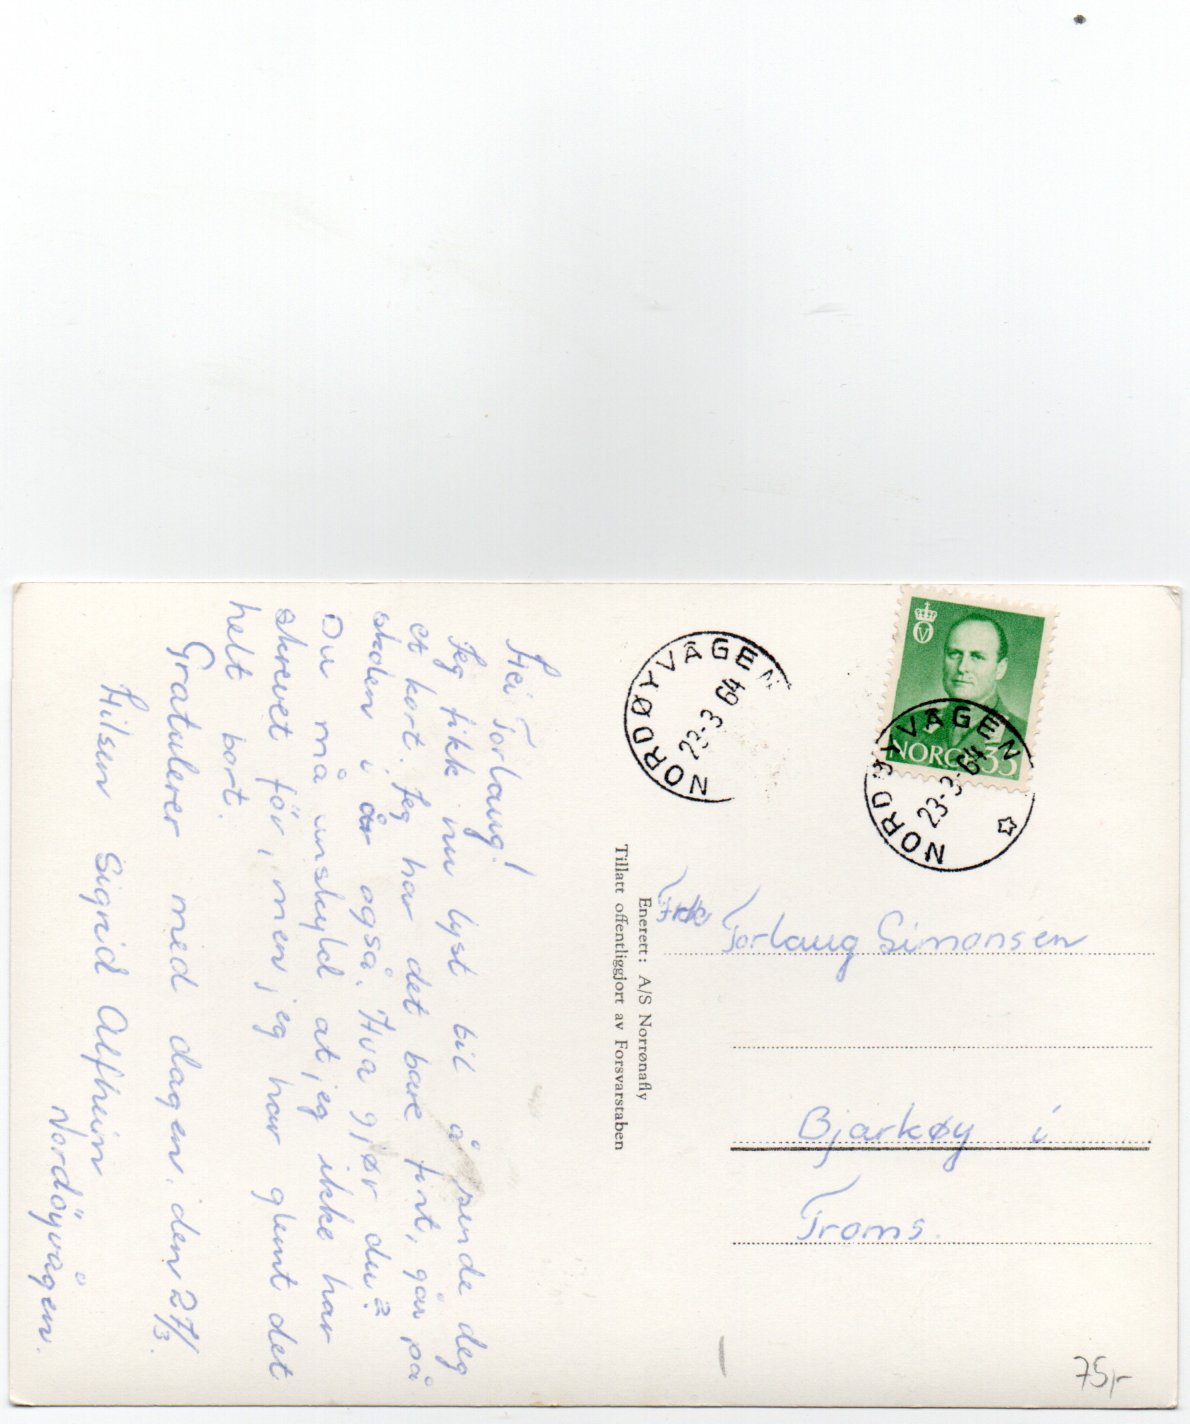 Hei Torlaug!
Jeg fikk nu lyst til å sende deg
et kort. Jeg har det bare fint, går på
skolen i år også. Hva gjør du?
Du må unskyld at jeg ikke har
skrevet för, men jeg har glemt det
helt bort.
Gratulerer med dagen, den 27/3.
Hilsen Sigrid Alfheim
Nordöyvågen.
Enerett: A/S Norrønafly
Tillatt offentliggjort av Forsvarstaben
NORDØYVÅGEN
23-3 64
V
NORGE 35
NORDØYVÅGEN
23-3-64
Frk. Torlaug Simonsen
Bjarkøy i
Troms.
75,-